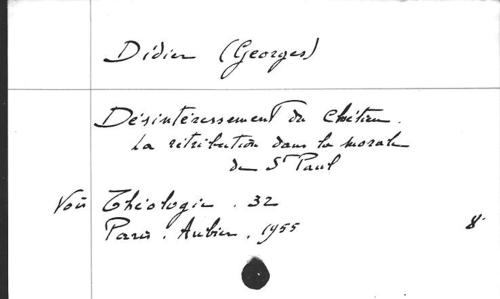 Didier (Georges)
Désintéressement du Chrétien.
La rétribution dans la morale
de St Paul
Voir Théologie . 32
Paris . Aubier . 1955 8°